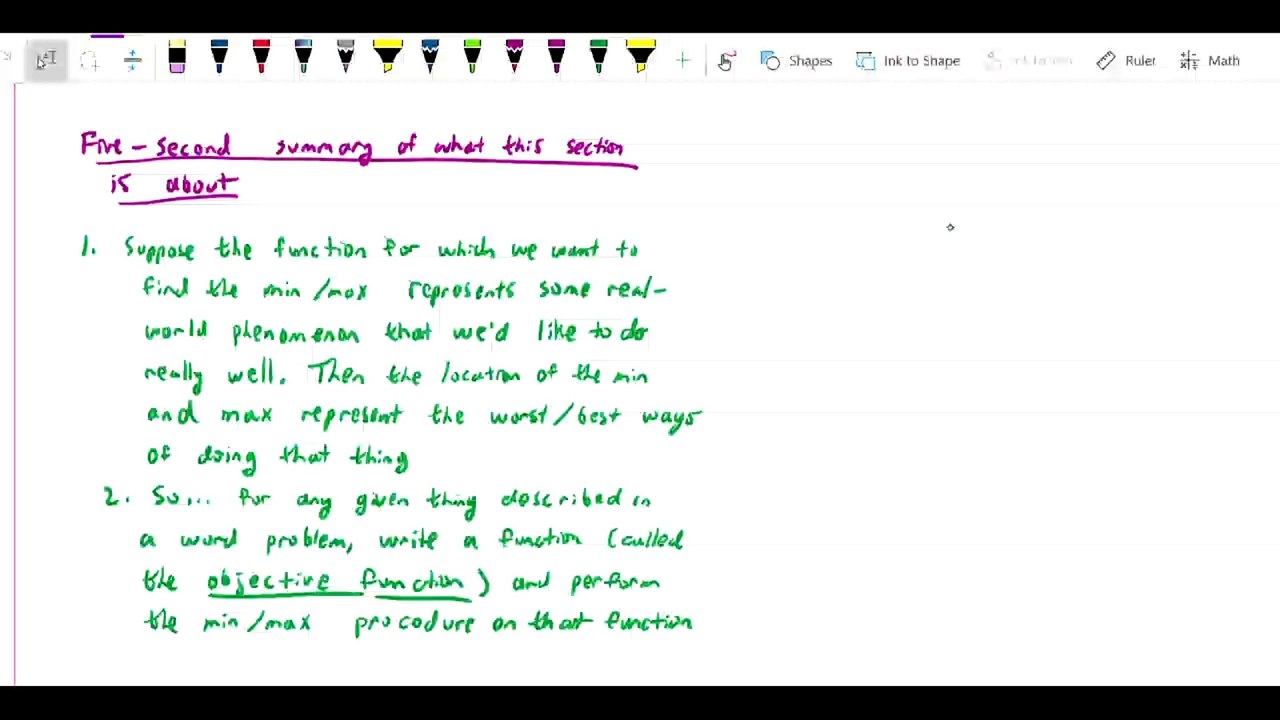 Shapes Ink to Shape Ruler Math
Five-second summary of what this section
is about
1. Suppose the function for which we want to
find the min/max represents some real-
world phenomenon that we'd like to do
really well. Then the location of the min
and max represent the worst/best ways
of doing that thing
2. So... for any given thing described in
a word problem, write a function (called
the objective function) and perform
the min/max procedure on that function